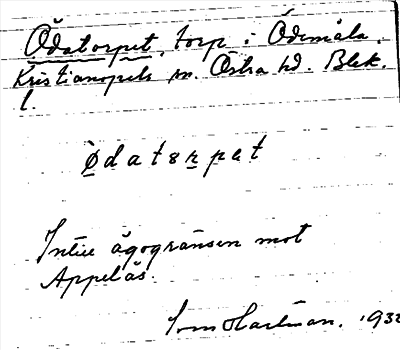 Ödatorpet, torp i Ödemåla,
Kristianopels sn. Östra hd. Blek.
l.
ødatɛrpɛt
Intill ägogränsen mot
Appelås.
1932